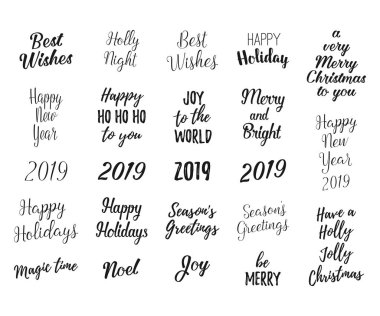 Best
Wishes
Holly
Night
Best
Wishes
HAPPY
Holiday
a
very
Merry
Christmas
to you
Happy
New
Year
Happy
HO HO HO
to you
JOY
to the
WORLD
Merry
and
Bright
Happy
New
Year
2019
2019
2019
2019
2019
Happy
Holidays
Happy
Holidays
Season's
Greetings
Season's
Greetings
Have a
Holly
Jolly
Christmas
Magic time
Noel
Joy
be
MERRY